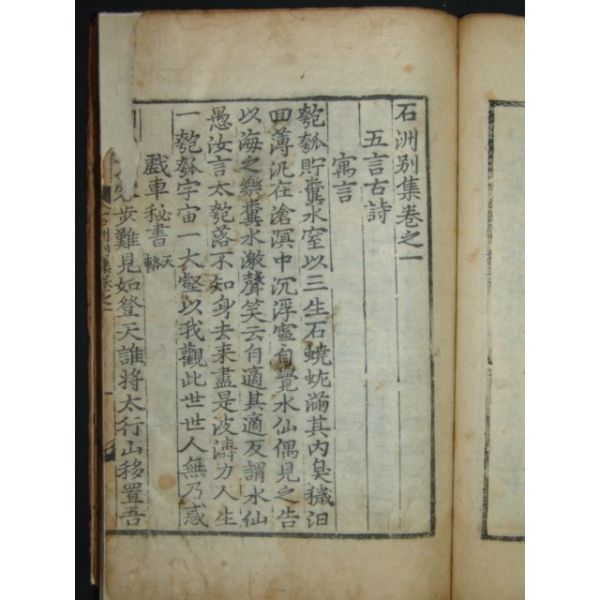 石洲別集卷之一
五言古詩
寓言
匏瓠貯糞水窒以三生石蟯蚘滿其内臭穢汨
回薄汎在滄溟中沉浮寧自覺水仙偶見之告
以海之樂糞水激聲笑云自適其適反謂水仙
愚汝言太匏落不知身去来盡是波濤力人生
一匏瓠宇宙一大壑以我觀此世世人無乃惑
戱車秘書天輅
步難見如登天誰將太行山移置吾
石洲別集卷之一